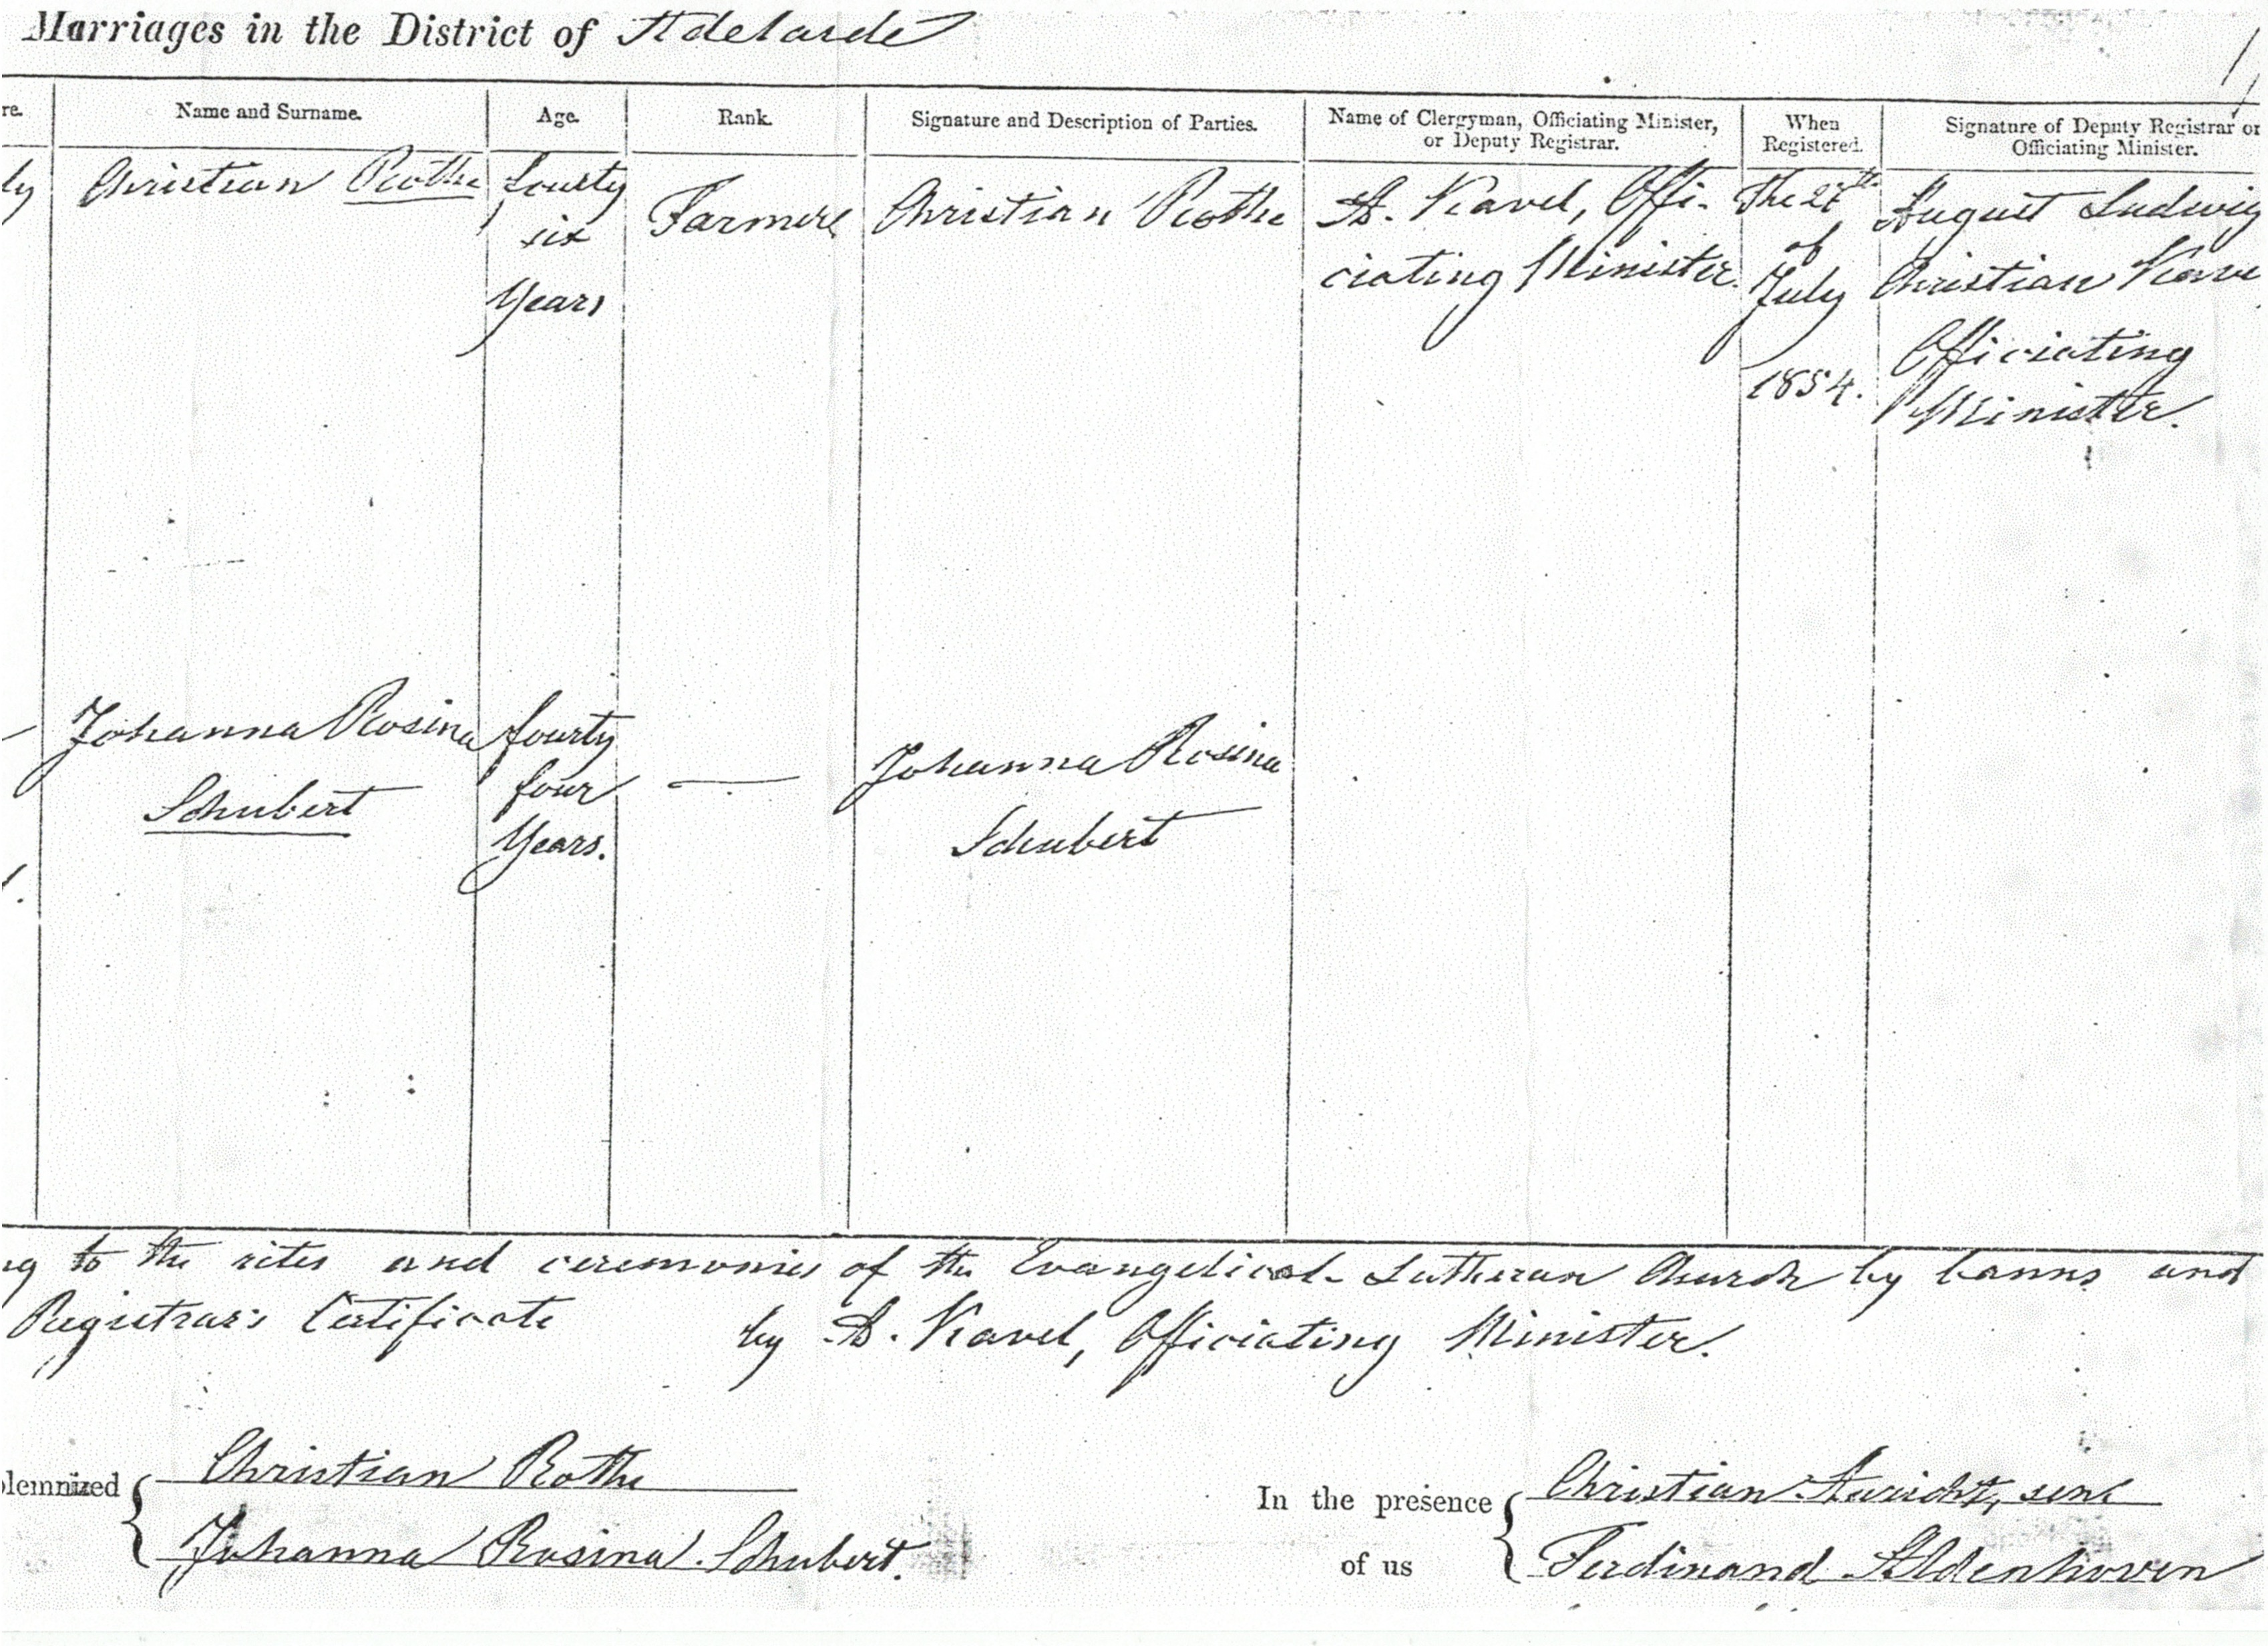 Marriages in the District of Adelaide
re.
Name and Surname.
Age.
Rank.
Signature and Description of Parties.
Name of Clergyman, Officiating Minister,
or Deputy Registrar.
When
Registered.
Signature of Deputy Registrar or
Officiating Minister.
ly
Christian Rothe
fourty
six
Years
Farmer
Christian Rothe
A. Kavel, Offi-
ciating Minister.
The
of
July
1854.
August Ludwig
Christian Kave
Officiating
Minister.
Johanna Rosina
Schubert
fourty
four
Years.
—
Johanna Rosina
Schubert
ng to the rites and ceremonies of the Evangelical-Lutheran Church by banns and
Registrar's Certificate by A. Kavel, Officiating Minister.
olemnized
Christian Rothe
Johanna Rosina Schubert.
In the presence
of us
Christian Auricht, sen
Ferdinand Aldenhoven